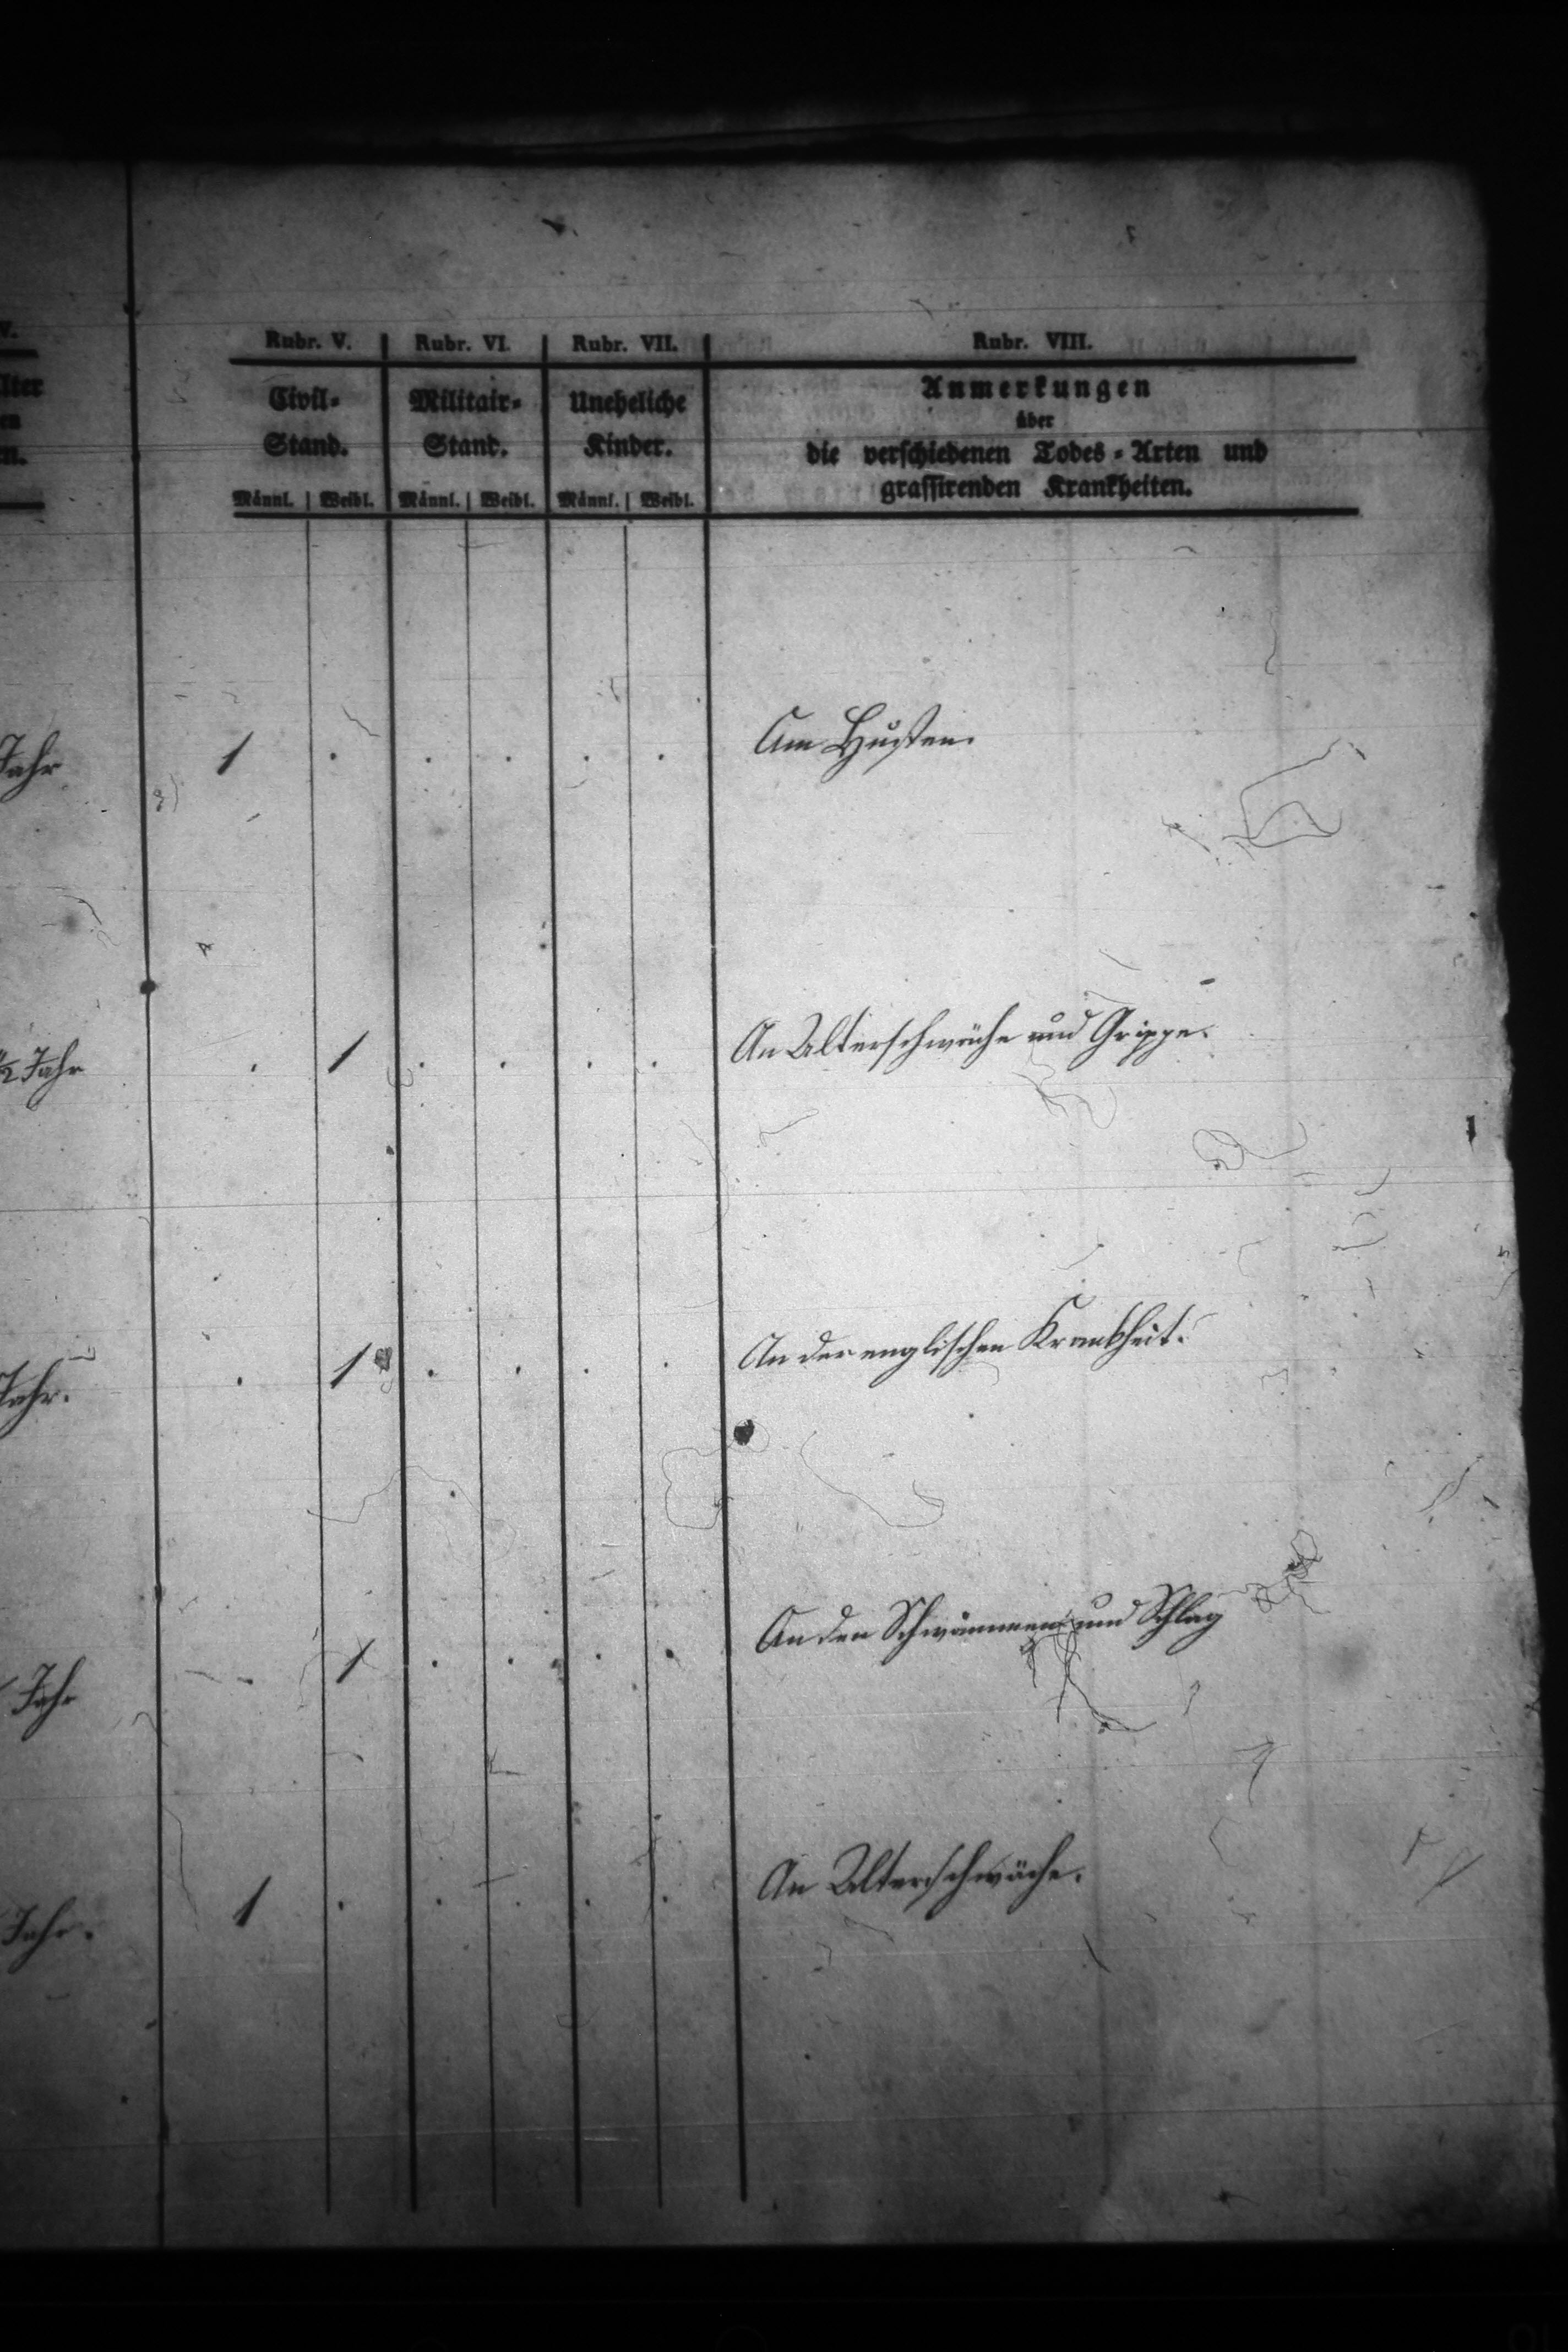 V. Rubr. V. Rubr. VI. Rubr. VII. Rubr. VIII.
lter Civil- Militair- Uneheliche Anmerkungen
en über
n. Stand. Stand. Kinder. die verschiedenen Todes-Arten und
grassirenden Krankheiten.
Männl. Weibl. Männl. Weibl. Männl. Weibl.
Jahr 1 . . . . . Am Husten.
½ Jahr . 1 . . . . An Alterschwäche und Grippe.
Jahr. . 1 . . . . An der englischen Krankheit.
Jahr . 1 . . . . An den Schwämmen und Schlag
Jahr. 1 . . . . . An Alterschwäche.